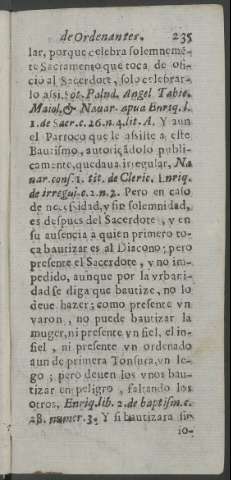 de Ordenantes. 235
lar, porque celebra solemnemē-
te Sacramento que toca de ofi-
cio al Sacerdote, solo celebrar-
lo assi. Sot. Palud. Angel Tabie.
Maiol, & Nauar. apud Enriq. l.
1. de Sacr. c. 26. n. 4. lit. A. Y aun
el Parroco que le assiste a este
Bautismo, autoriçādolo publi-
camente, quedaua irregular, Na
uar. cons. 1. tit. de Cleric. Enriq.
de irregul. c. 2. n. 2. Pero en caso
de necesidad, y sin solemnidad,
es despues del Sacerdote, y en
su ausencia a quien primero to-
ca bautizar es al Diacono; pero
presente el Sacerdote, y no im-
pedido, aunque por la vrbani-
dad se diga que bautize, no lo
deue hazer; como presente vn
varon, no puede bautizar la
muger, ni presente vn fiel, el in-
fiel, ni presente vn ordenado
aun de primera Tonsura, vn le-
go; pero deuen los vnos bau-
tizar en peligro, faltando los
otros, Enriq. lib. 2. de baptism. c.
28. numer. 3. Y si bautizara sin
io-